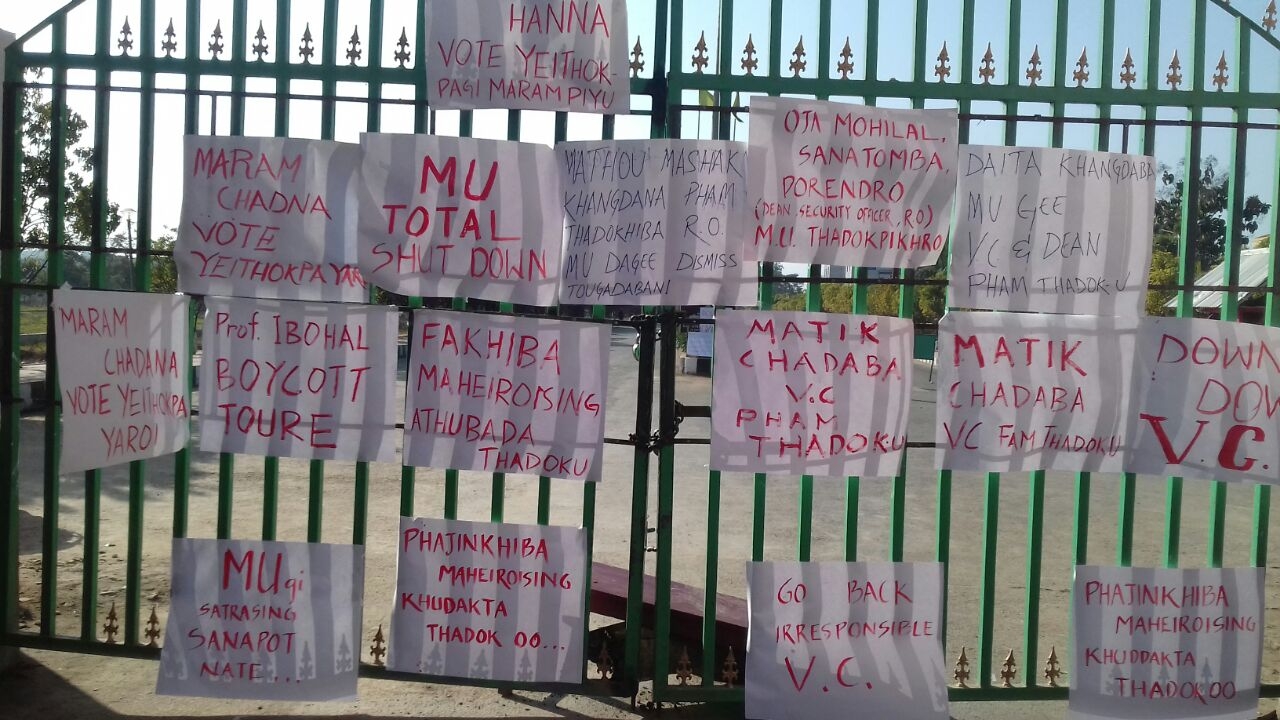 HANNA
VOTE YEITHOK-
PAGI MARAM PIYU
MARAM
CHADNA
VOTE
YEITHOKPA YARO
MU
TOTAL
SHUT DOWN
MATHOU MASHAK
KHANGDANA PHAM
THADOKHIBA R.O.
MU DAGEE DISMISS
TOUGADABANI
OJA MOHILAL,
SANATOMBA,
DORENDRO
(DEAN, SECURITY OFFICER, R.O)
M.U. THADOKPIKHRO
DAITA KHANGDABA
MU GEE
VC & DEAN
PHAM THADOKU
MARAM
CHADANA
VOTE YEITHOKPA
YAROI
Prof. IBOHAL
BOYCOTT
TOURE
FAKHIBA
MAHEIROISING
ATHUBADA
THADOKU
MATIK
CHADABA
V.C
PHAM
THADOKU
MATIK
CHADABA
VC FAM THADOKU
DOWN
DOW
V.C.
MUgi
SATRASING
SANAPOT
NATE...
PHAJINKHIBA
MAHEIROISING
KHUDAKTA
THADOK OO...
GO BACK
IRRESPONSIBLE
V.C.
PHAJINKHIBA
MAHEIROISING
KHUDDAKTA
THADOKOO